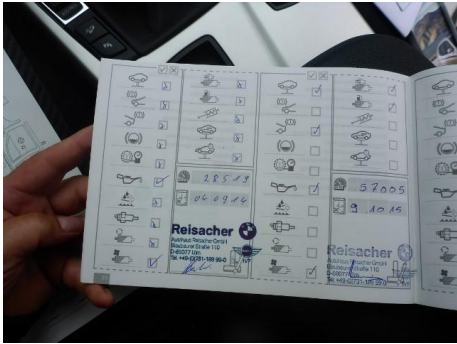 28513
04 09 14
Reisacher
Autohaus Reisacher GmbH
Blaubeurer Straße 110
D-89077 Ulm
Tel. +49-(0)731-189 99-0
57005
9 10 15
Reisacher
Autohaus Reisacher GmbH
Blaubeurer Straße 110
D-89077 Ulm
Tel. +49-(0)731-189 99-0